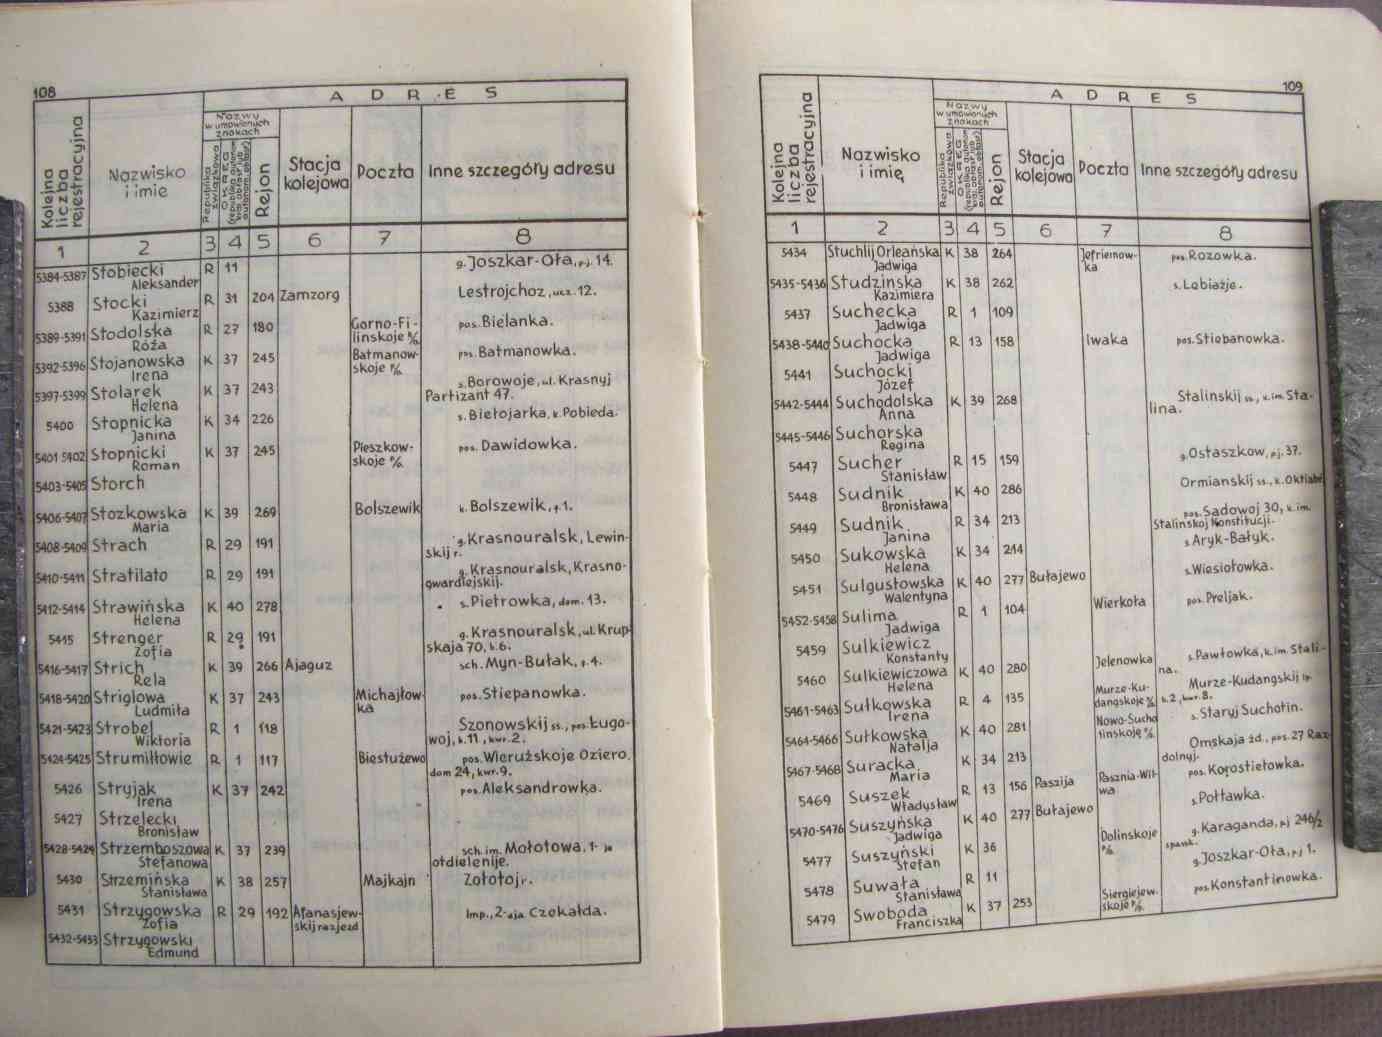 108
A D R E S
Kolejna liczba rejestracyjna
Nazwisko i imię
Nazwy w umówionych znakach
Republika związkowa
Rejon
Stacja kolejowa
Poczta
Inne szczegóły adresu
1 2 3 4 5 6 7 8
5384-5387 Stobiecki R 11 g. Joszkar-Oła, pj. 14.
Aleksander
5388 Stocki R 31 204 Zamzorg Lestrojchoz, ucz. 12.
Kazimierz
5389-5391 Stodolska R 27 180 Gorno-Fi- pos. Bielanka.
Róża linskoje
5392-5396 Stojanowska K 37 245 Batmanow- pos. Batmanowka.
Irena skoje
5397-5399 Stolarek K 37 243 s. Borowoje, ul. Krasnyj
Helena Partizant 47.
5400 Stopnicka K 34 226 s. Biełojarka, k. Pobieda.
Janina
5401 5402 Stopnicki K 37 245 Pieszkow- pos. Dawidowka.
Roman skoje
5403-5405 Storch
5406-5407 Stozkowska K 39 269 Bolszewik k. Bolszewik, f. 1.
Maria
5408-5409 Strach R 29 191 g. Krasnouralsk, Lewin-
skij r.
5410-5411 Stratilato R 29 191 g. Krasnouralsk, Krasno-
gwardiejskij.
5412-5414 Strawińska K 40 278 s. Pietrowka, dom. 13.
Helena
5415 Strenger R 29 191 g. Krasnouralsk, ul. Krup-
Zofia skaja 70, k. 6.
5416-5417 Strich K 39 266 Ajaguz sch. Myn-Bułak, f. 4.
Rela
5418-5420 Striglowa K 37 243 Michajłow- pos. Stiepanowka.
Ludmiła ka
5421-5423 Strobel R 1 118 Szonowskij ss., pos. Ługo-
Wiktoria woj, k. 11, kwr. 2.
5424-5425 Strumiłłowie R 1 117 Biestużewo pos. Wierużskoje Oziero,
dom 24, kwr. 9.
5426 Stryjak K 37 242 pos. Aleksandrowka.
Irena
5427 Strzelecki
Bronisław
5428-5429 Strzemboszowa K 37 239 sch. im. Mołotowa, 1-je
Stefanowa otdielenije.
5430 Strzemińska K 38 257 Majkajn Zołotoj r.
Stanisława
5431 Strzygowska R 29 192 Afanasjew- Imp., 2-aja Czekałda.
Zofia skij razjezd
5432-5433 Strzygowski
Edmund
109
A D R E S
Kolejna liczba rejestracyjna
Nazwisko i imię
Nazwy w umówionych znakach
Republika związkowa
Rejon
Stacja kolejowa
Poczta
Inne szczegóły adresu
1 2 3 4 5 6 7 8
5434 Stuchlij Orleańska K 38 264 Jefriemow- pos. Rozowka.
Jadwiga ka
5435-5436 Studzinska K 38 262 s. Lebiażje.
Kazimiera
5437 Suchecka R 1 109
Jadwiga
5438-5440 Suchocka R 13 158 Iwaka pos. Stiepanowka.
Jadwiga
5441 Suchocki
Józef
5442-5444 Suchodolska K 39 268 Stalinskij ss., k. im. Sta-
Anna lina.
5445-5446 Suchorska
Regina
5447 Sucher R 15 159 g. Ostaszkow, pj. 37.
Stanisław
5448 Sudnik K 40 286 Ormianskij ss., k. Oktiabr
Bronisława
5449 Sudnik R 34 213 pos. Sadowoj 30, k. im.
Janina Stalinskoj Konstitucji.
5450 Sukowska K 34 214 s. Aryk-Bałyk.
Helena
5451 Sulgustowska K 40 277 Bułajewo s. Wiesiołowka.
Walentyna
5452-5458 Sulima R 1 104 Wierkoła pos. Preljak.
Jadwiga
5459 Sulkiewicz
Konstanty
5460 Sulkiewiczowa K 40 280 Jelenowka s. Pawłowka, k. im. Stali-
Helena na.
5461-5463 Sułkowska R 4 135 Murze-Ku- Murze-Kudangskij lp.
Irena dangskoje k. 2, kwr. 8.
5464-5466 Sułkowska K 40 281 Nowo-Sucho s. Staryj Suchotin.
Natalja tinskoje
5467-5468 Suracka K 34 213 Omskaja żd., pos. 27 Raz-
Maria dolnyj.
5469 Suszek R 13 156 Paszija Pasznia-Wił- pos. Korostielowka.
Władysław wa
5470-5476 Suszyńska K 40 277 Bułajewo s. Połtawka.
Jadwiga
5477 Suszyński K 36 Dolinskoje g. Karaganda, pj 246/2
Stefan
5478 Suwała R 11 g. Joszkar-Oła, pj 1.
Stanisława
5479 Swoboda K 37 253 Siergiejew- pos. Konstantinowka.
Franciszka skoje